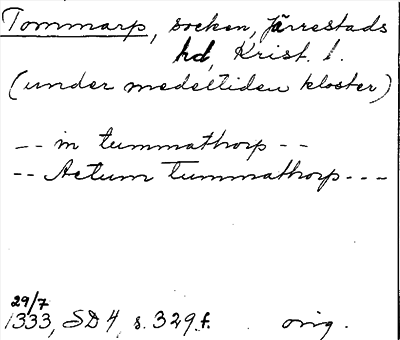 Tommarp, socken, Järrestads
hd, Krist. l.
(under medeltiden kloster)
-- in tummathorp --
-- Actum Tummathorp ---
29/7
1333, SD 4, s. 329 f. orig.